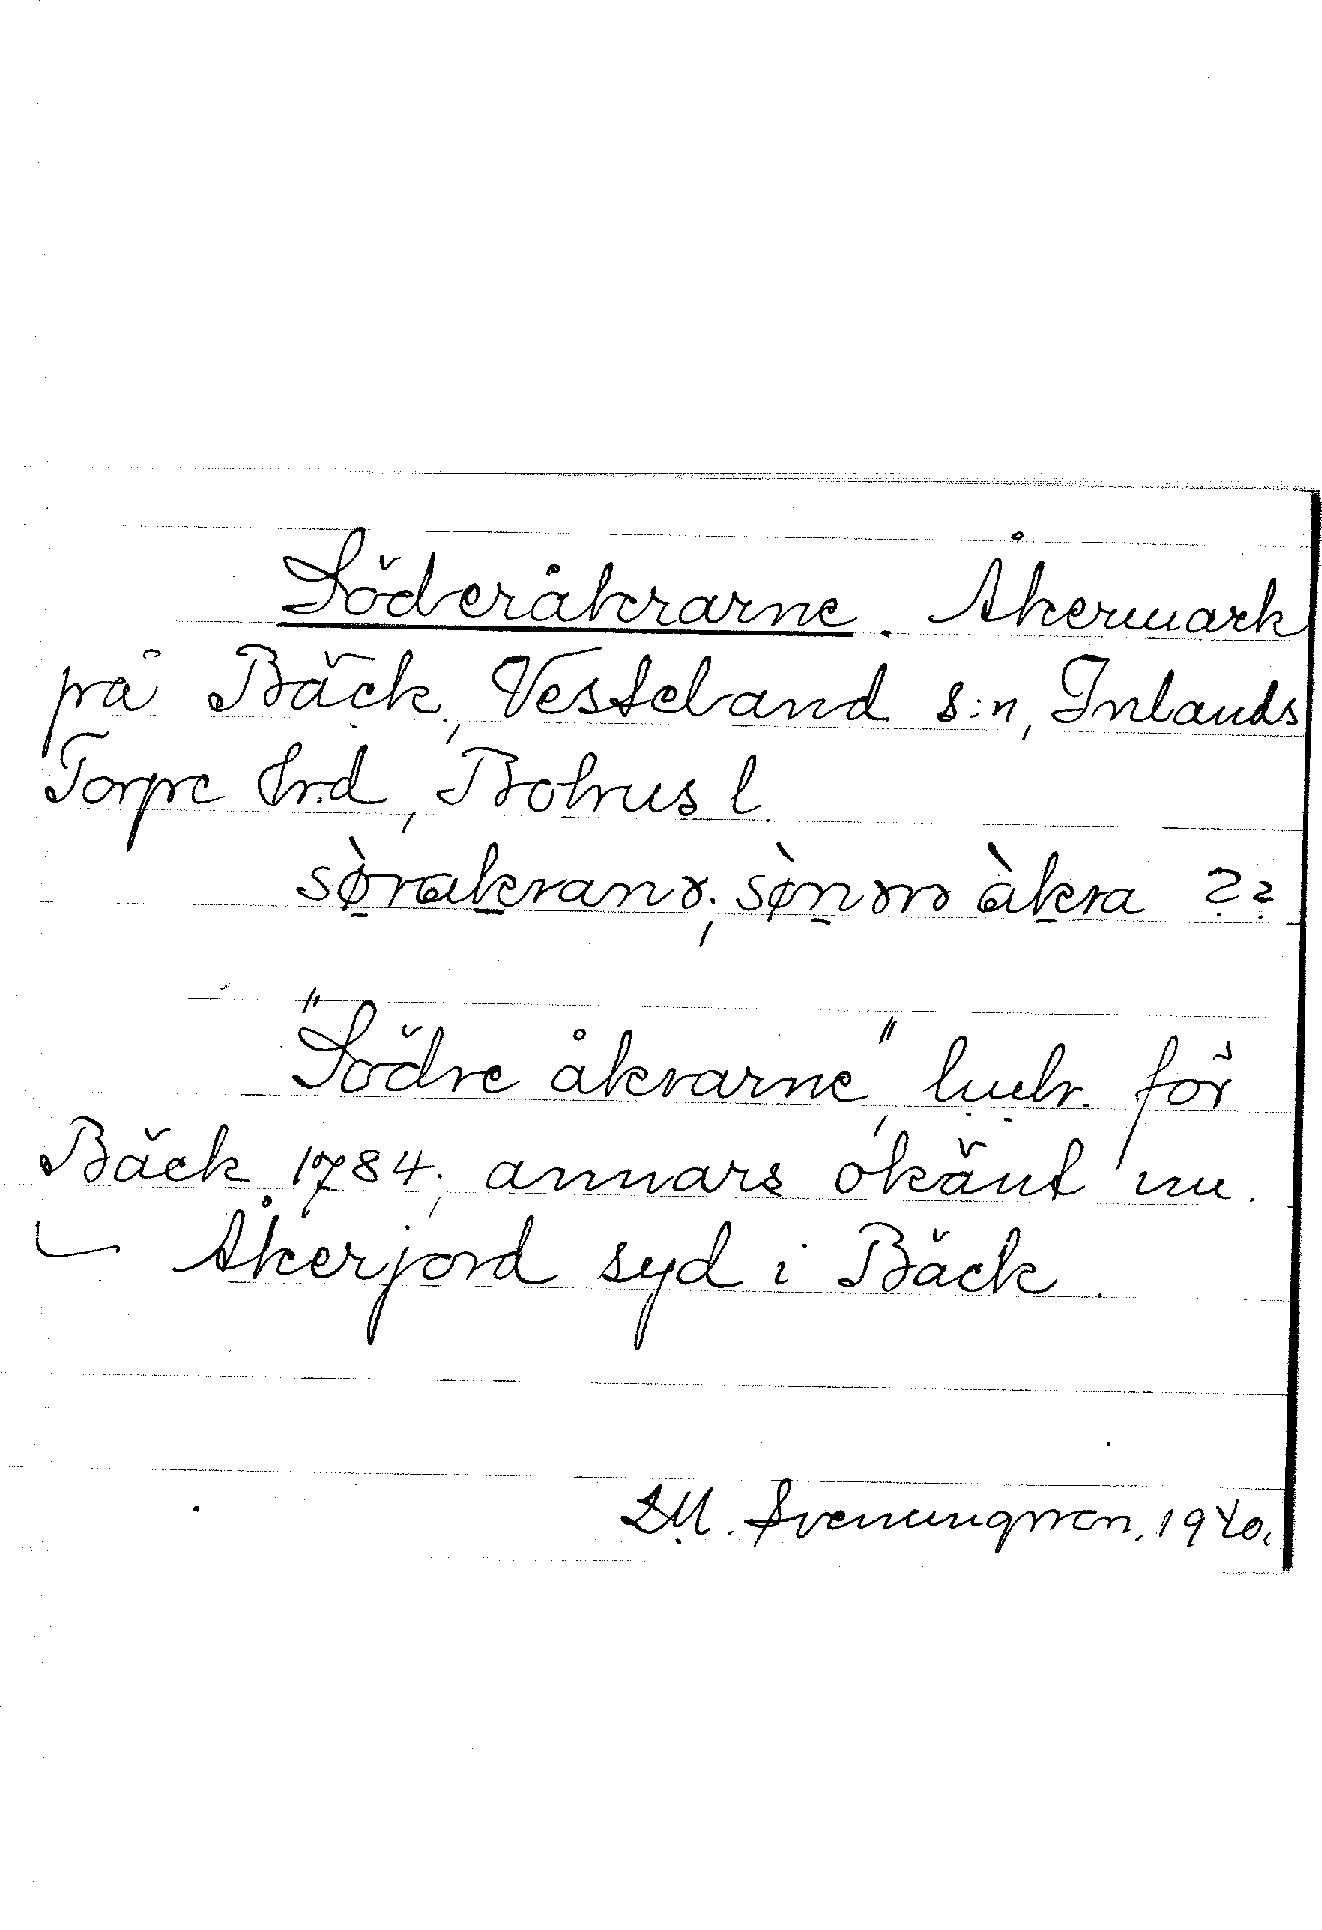 Söderåkrarne. Åkermark
på Bäck, Vesteland s:n, Inlands
Torpe hrd, Bohus l.
sø̀rakranɤ; sø̀nɤrɤ àkra ??
"Södre åkrarne", för
Bäck 1784; annars okänt nu.
Åkerjord syd i Bäck.
Svenungsson, 1940.